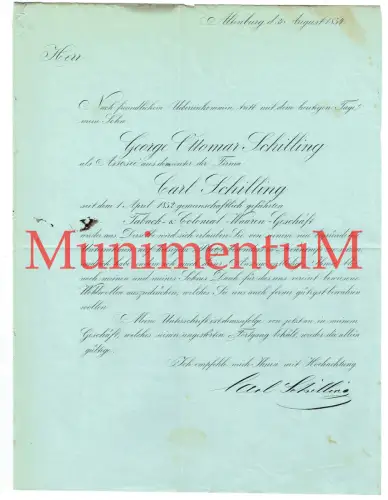 Altenburg d. August 1854
Herr
Nach freundlichem Uebereinkommen tritt mit dem heutigen Tage
mein Sohn
George Ottomar Schilling
als Associé aus dem unter der Firma
Carl Schilling
seit dem 1. April 1852 gemeinschaftlich geführten
Taback- & Colonial-Waaren-Geschäft
wieder aus.
MunimentuM
noch meinen und meines Sohnes Dank für das uns vereint bewiesene
Wohlwollen auszudrücken, welches Sie uns auch ferner gütigst bewahren
wollen.
Meine Unterschrift ist demzufolge von jetzt an in meinem
Geschäft, welches seinen ungestörten Fortgang behält, wieder die allein
gültige.
Ich empfehle mich Ihnen mit Hochachtung
Carl Schilling